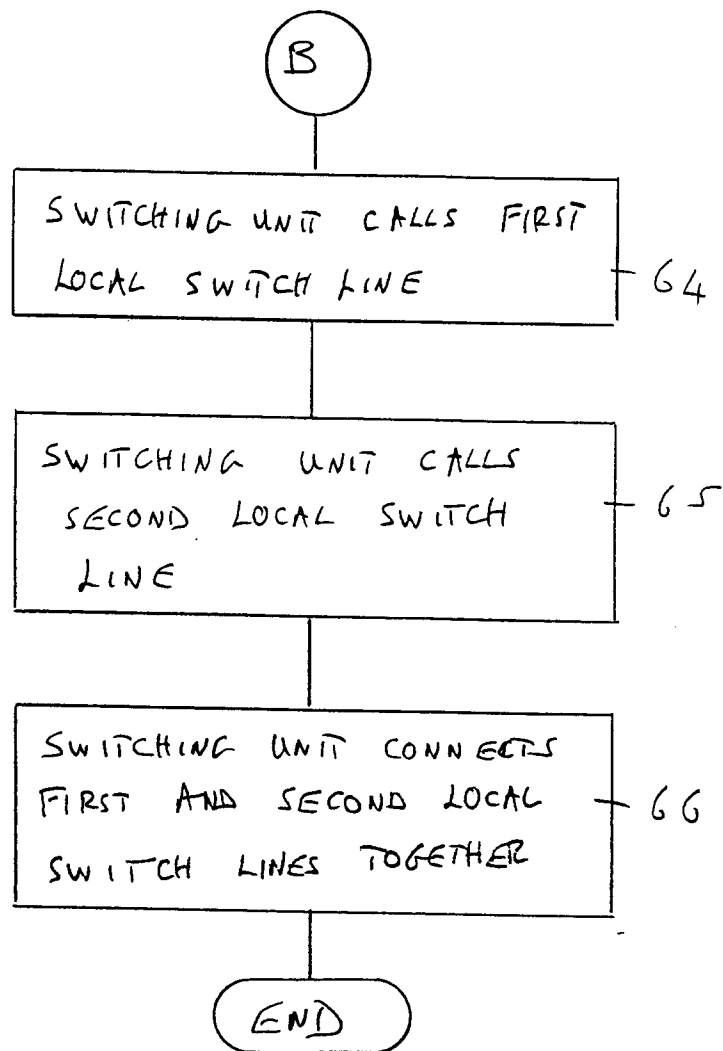 B
SWITCHING UNIT CALLS FIRST
LOCAL SWITCH LINE
64
SWITCHING UNIT CALLS
SECOND LOCAL SWITCH
LINE
65
SWITCHING UNIT CONNECTS
FIRST AND SECOND LOCAL
SWITCH LINES TOGETHER
66
END